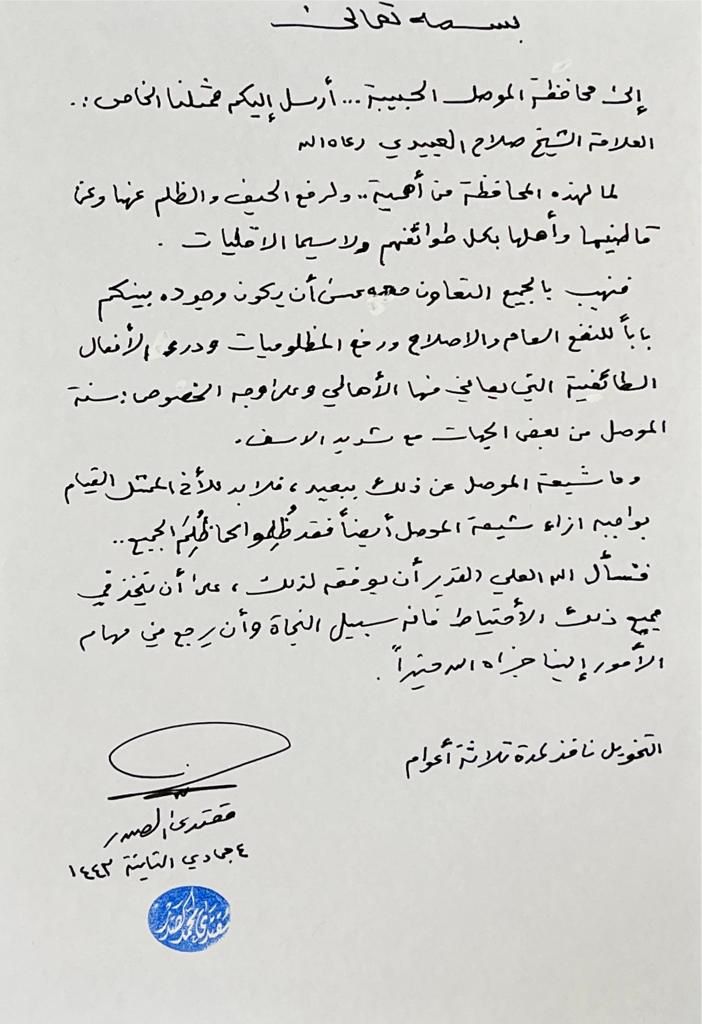 بسمه تعالى
إلى محافظة الموصل الحبيبة... أرسل إليكم ممثلنا الخاص:.
العلامة الشيخ صلاح العبيدي رعاه الله
لما لهذه المحافظة من أهمية.. ولرفع الحيف والظلم عنها وعن
قاطنيها وأهلها بكل طوائفهم ولاسيما الاقليات.
فنهيب بالجميع التعاون معه عسى أن يكون وجوده بينكم
باباً للنفع العام والاصلاح ورفع المظلوميات ودرء الأفعال
الطائفية التي يعاني منها الأهالي وعلى وجه الخصوص: سنة
الموصل من بعض الجهات مع شديد الاسف.
وما شيعة الموصل عن ذلك ببعيد، فلابد للأخ الممثل القيام
بواجبه ازاء شيعة الموصل أيضاً فقد ظُلِموا كما ظُلِمَ الجميع..
فنسأل الله العلي القدير أن يوفقه لذلك، على أن يتخذ في
جميع ذلك الأحتياط فانه سبيل النجاة وأن يرجع في مهام
الأمور إلينا جزاه الله خيراً.
التخويل نافذ لمدة ثلاثة أعوام
مقتدى الصدر
٤ جمادي الثانية ١٤٤٣
مقتدى محمد الصدر